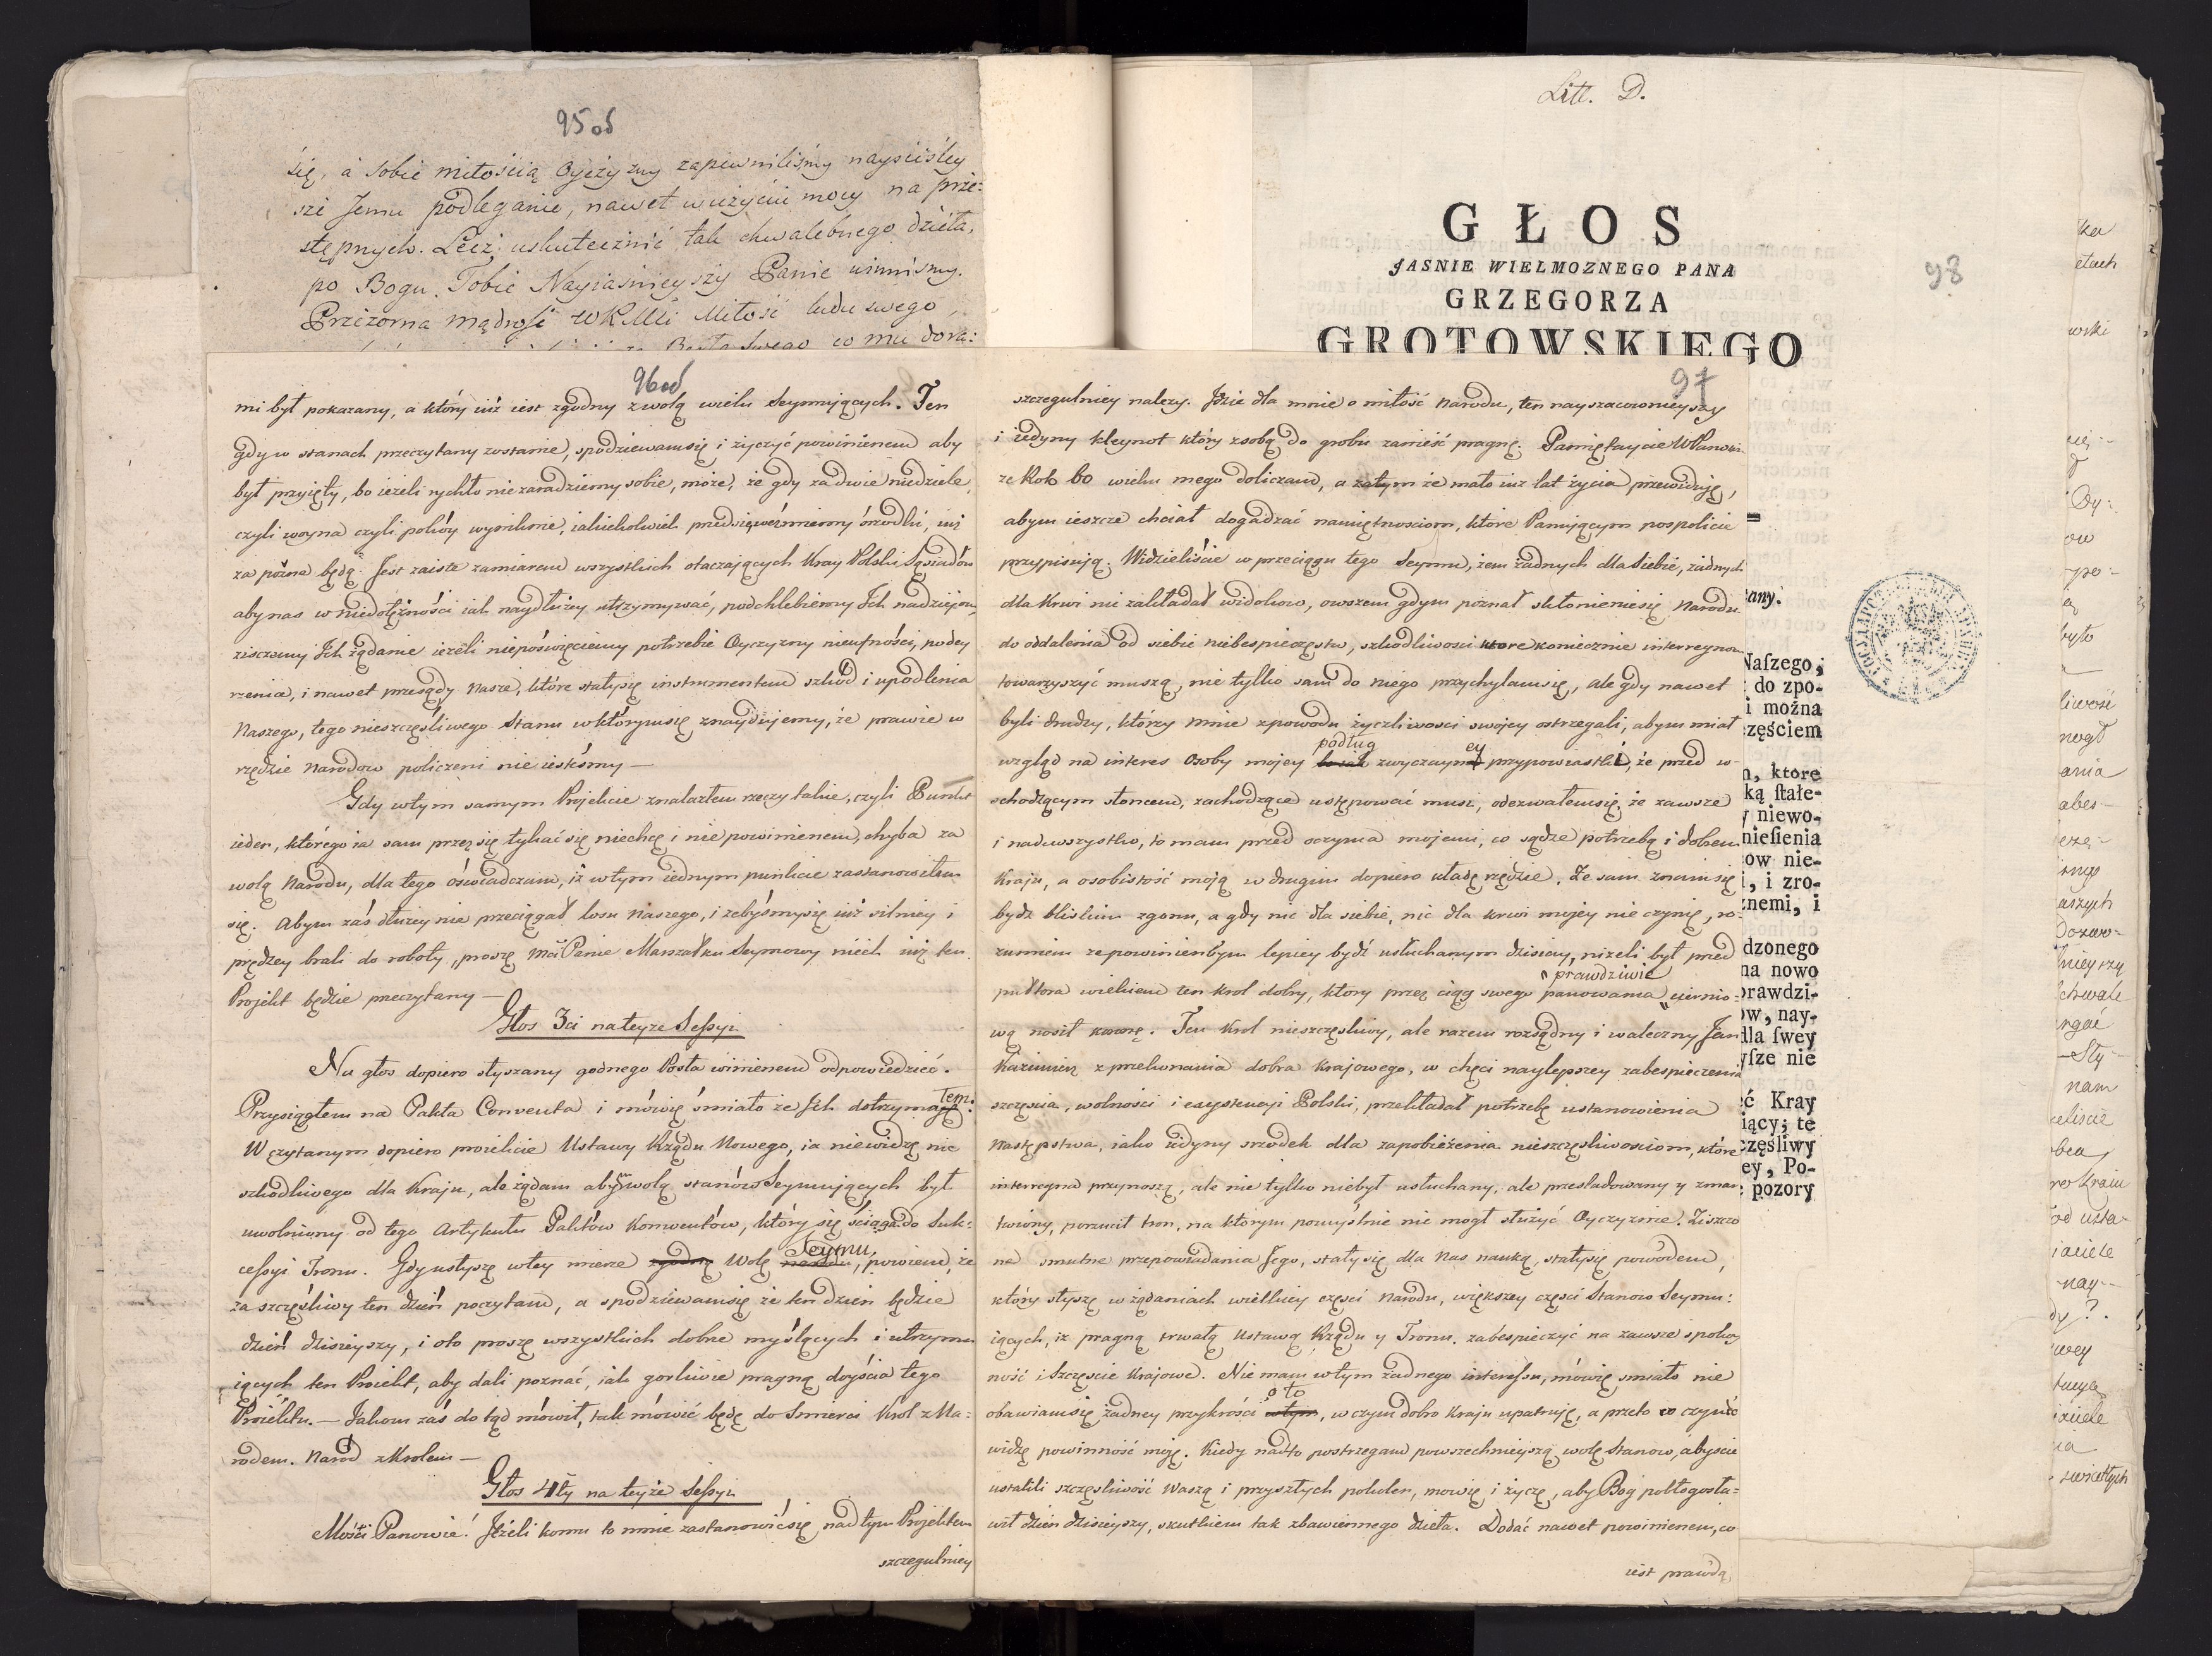 95 od
się, a sobie miłością Oyczyzny zapewniliśmy nayściśley
sze Jemu podleganie, nawet w użyciu mocy na prze:
stępnych. Lecz uskutecznić tak chwalebnego dzieła,
po Bogu Tobie Nayiaśnieyszy Panie winniśmy.
Przezorna mądrość WKMci Miłość ludu swego,
Swego co mu dora:
96 od
mi był pokazany, a który iuż iest zgodny z wolą wielu Seymuiących. Ten
gdy w stanach przeczytany zostanie, spodziewam się i życzyć powinienem aby
był przyięty, bo ieżeli rychło nie zaradziemy sobie, może, że gdy za dwie niedziele,
czyli woyna czyli pokóy wyniknie, iakichkolwiek przedsięweźmiemy śrzodki, iuż
za późne będą. Jest zaiste zamiarem wszystkich otaczaiących Kray Polski Sąsiadów
aby nas w niedołężności iak naydłużey utrzymywać, podchlebiemy Ich nadzieiom,
ziscziemy Ich żądanie ieżeli niepoświęciemy potrzebie Oyczyzny nieufności, podey
rzenia, i nawet przesądy nasze, które stały się instrumentem szkód i upodlenia
Naszego, tego nieszczęśliwego Stanu w którym się znayduiemy, że prawie w
rzędzie Narodow policzeni nie iesteśmy —
Gdy w tym samym Projekcie znalazłem rzeczy takie, czyli Punkt
ieden, którego ia sam przez się tykać się niechcę i nie powinienem, chyba za
wolą Narodu, dla tego oświadczam, iż w tym iednym punkcie zastanowiłem
się. Abym zaś dłużey nie przeciągał losu Naszego, i żebyśmy się iuż silniey i
prędzey brali do roboty, proszę Mci Panie Marszałku Seymowy niech iuż ten
Projekt będzie przeczytany —
Głos 3ci na teyże Sessyi
Na głos dopiero słyszany godnego Posła winienem odpowiedzieć.
Przysiągłem na Pakta Conventa i mówię śmiało że Ich dotrzymałem.
W czytanym dopiero proiekcie Ustawy Rządu Nowego, ia niewidzę nic
szkodliwego dla Kraju, ale żądam abym wolą stanów Seymuiących był
uwolniony od tego Artykułu Paktów Konwentów, który się ściąga do Suk:
cessyi Tronu. Gdy usłyszę w tey mierze zgodną Wolę narodu Seymu, powiem, że
za szczęśliwy ten dzień poczytam, a spodziewam się że ten dzień będzie
dzień dzisieyszy, i oto proszę wszystkich dobrze myślących i utrzymu
iących ten Proiekt, aby dali poznać, iak gorliwie pragną doyścia tego
Proiektu. — Jakom zaś do tąd mówił, tak mówić będę do Smierci Krol z Na:
rodem. Narod z Krolem —
Głos 4ty na teyże Sessyi
Mości Panowie! Jeżeli komu to mnie zastanowić się nad tym Projektem
szczegulniey
97
szczegulniey należy. Jdzie dla mnie o miłość Narodu, ten nayszacownieyszy
i iedyny kleynot który z sobą do grobu zanieść pragnę. Pamiętaycie WPanowie
że Rok 60 wieku mego doliczam, a zatym że mało iuż lat życia przewiduję,
abym ieszcze chciał dogadzać namiętnosciom, które Panuiącym pospolicie
przypisuią. Widzieliście w przeciągu tego Seymu, żem żadnych dla siebie, żadnych
dla krwi nie zakładał widokow, owszem gdym poznał skłonienie się Narodu
do oddalenia od siebie niebespieczęstw, szkodliwosci ktore koniecznie interregnom
towarzyszyć muszą, nie tylko sam do niego przychylam się, ale gdy nawet
byli drudzy, którzy mnie z powodu życzliwosci swojey ostrzegali, abym miał
wzgląd na interes Osoby mojey podług zwyczayney przypowiastki, że przed w-
schodzącym słońcem, zachodzące ustępować musi, odezwałem się, że zawsze
i nadewszystko, to mam przed oczyma mojemi, co sądzę potrzebą i dobrem
Kraju, a osobistość moją w drugim dopiero kładę rzędzie. Że sam znam się
bydz bliskim zgonu, a gdy nic dla siebie, nic dla krwi mojey nie czynię, ro:
zumiem ze powinienbym lepiey bydź usłuchanym dzisiay, niżeli był przed
pułtora wiekiem ten Krol dobry, który przez ciąg swego panowania prawdziwie ciernio:
wą nosił koronę. Ten Krol nieszczęsliwy, ale razem rozsądny i waleczny Jan
Kazimierz z przekonania dobra Krajowego, w chęci naylepszey zabespieczenia
szczęscia, wolnosci i exystencyi Polski, przekładał potrzebę ustanowienia
Następstwa, iako iedyny srzodek dla zapobieżenia nieszczęsliwosciom, które
interregna przynoszą, ale nie tylko niebył usłuchany, ale przesladowany y zmar
twiony, porzucił tron, na którym pomyślnie nie mogł służyć Oyczyznie. Ziszczo
ne smutne przepowiadania Jego, stały się dla Nas nauką, stały się powodem,
który słyszę w żądaniach wielkiey częsci Narodu, większey częsci Stanow Seymu:
iących, iż pragną trwałą Ustawą Rządu y Tronu, zabespieczyć na zawsze spokoy
ność i Szczęscie Krajowe. Nie mam w tym żadnego interessu, mówię smiało nie
obawiam się żadney przykrości o to, w czym dobro Kraju upatruję, a przeto co czynić
widzę powinność moję. Kiedy nadto postrzegam powszechnieyszą wolę Stanow, abyscie
ustalili szczęsliwość Waszą i przyszłych pokoleń, mowię i życzę, aby Bog pobłogosła=
wił dzien dzisieyszy, skutkiem tak zbawiennego dzieła. Dodać nawet powinienem, co
iest prawdą,
Litt. D.
98
GŁOS
JASNIE WIELMOZNEGO PANA
GRZEGORZA
GROTOWSKIEGO
any.
Naſzego;
do zpo-
i można
zęściem
n, ktore
ką ſtałe-
niewo-
nieſienia
ow nie-
i, i zro-
znemi, i
dzonego
na nowo
prawdzi-
ow, nay-
dla ſwey
yſze nie
ć Kray
iący; te
zęśliwy
ey, Po-
pozory